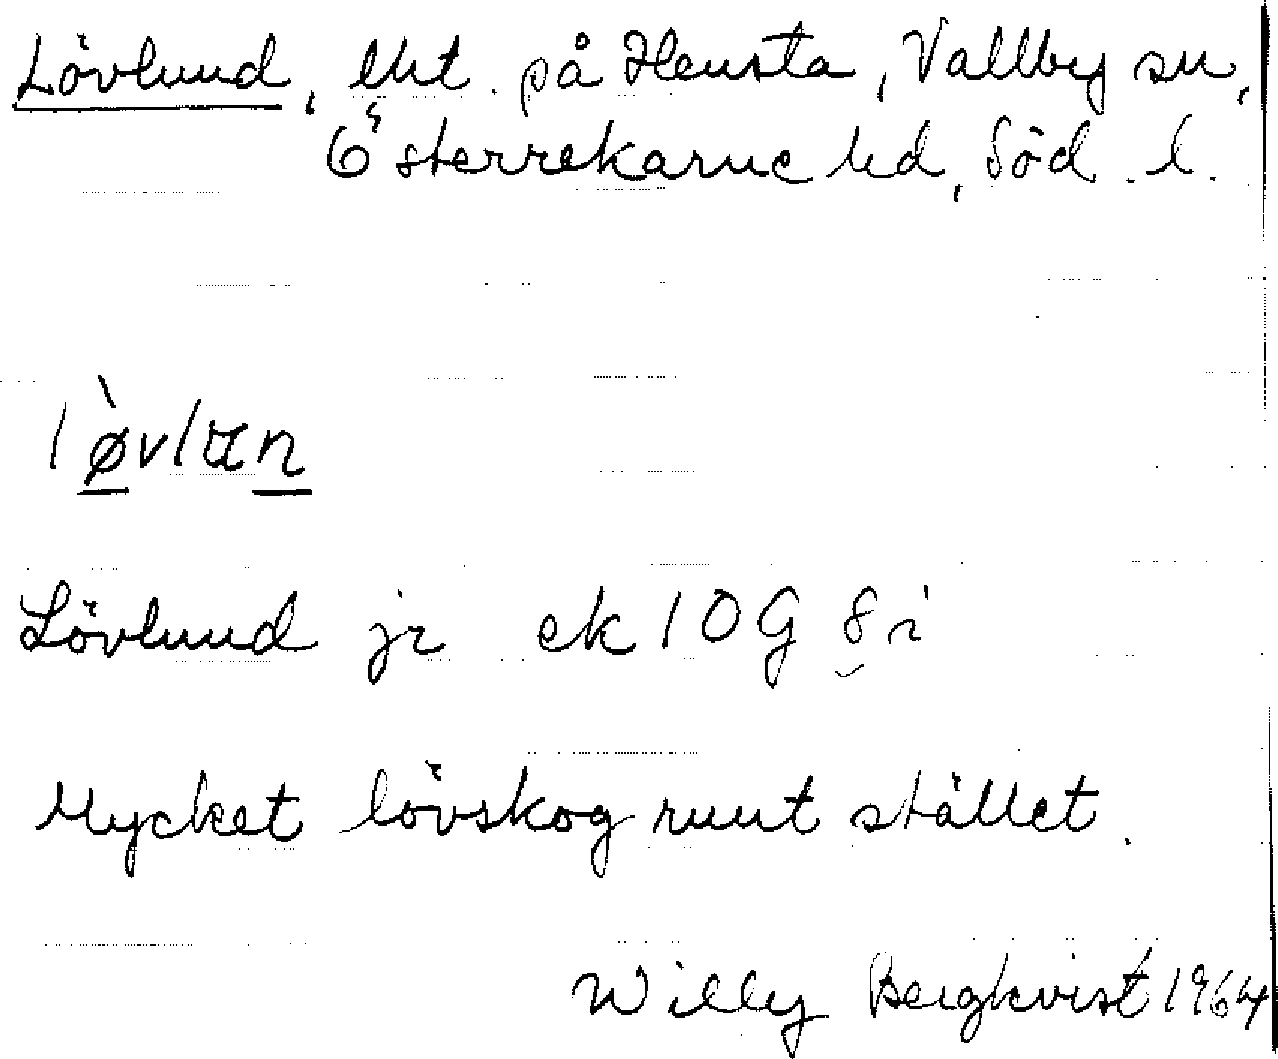 Lövlund, lht. på Hensta, Vallby sn,
Österrekarne hd, Söd. l.
løvlɯn
Lövlund jr ek 10G 8 i
Mycket lövskog runt stället.
Willy Bergkvist 1964